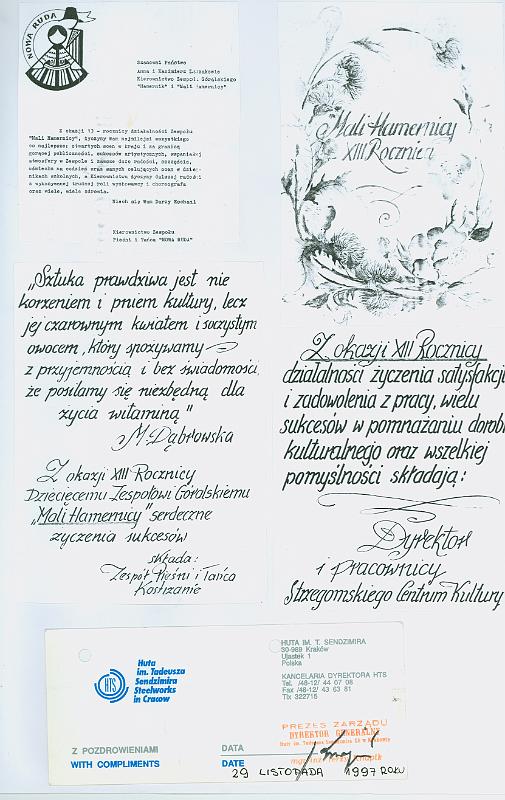 NOWA RUDA
Szanowni Państwo
Anna i Kazimierz
Kierownictwo Zespołu Góralskiego
"Hamernik" i "Mali Hamernicy"
Z okazji 13 - rocznicy działalności Zespołu
"Mali Hamernicy", życzymy Wam najmilej wszystkiego
co najlepsze: otwartych scen w kraju i za granicą
gorącej publiczności, sukcesów artystycznych, wspaniałej
atmosfery w Zespole i zawsze dużo radości, szczęścia,
uśmiechu na codzień oraz samych celujących ocen w dzien-
nikach szkolnych, a Kierownictwu życzymy dalszej radości
z wykonywanej trudnej roli wychowawcy i choreografa
oraz wiele, wiele zdrowia.
Niech się Wam Darzy Kochani
Kierownictwo Zespołu
Pieśni i Tańca "NOWA RUDA"
Mali Hamernicy
XIII Rocznica
„Sztuka prawdziwa jest nie
korzeniem i pniem kultury, lecz
jej czarownym kwiatem i soczystym
owocem, który spożywamy
z przyjemnością i bez świadomości,
że posilamy się niezbędną dla
życia witaminą"
M. Dąbrowska
Z okazji XIII Rocznicy
Dziecięcemu Zespołowi Góralskiemu
„Mali Hamernicy" serdeczne
życzenia sukcesów
składa:
Zespół Pieśni i Tańca
Kostrzanie
Z okazji XIII Rocznicy
działalności życzenia satysfakcji
i zadowolenia z pracy, wielu
sukcesów w pomnażaniu dorobk
kulturalnego oraz wszelkiej
pomyślności składają:
Dyrektor
i pracownicy
Strzegomskiego Centrum Kultury
HTS
Huta
im. Tadeusza
Sendzimira
Steelworks
in Cracow
HUTA IM. T. SENDZIMIRA
30-969 Kraków
Ujastek 1
Polska
KANCELARIA DYREKTORA HTS
Tel. /48-12/ 44 07 08
Fax /48-12/ 43 63 81
Tlx 322715
PREZES ZARZĄDU
DYREKTOR GENERALNY
Huty im. Tadeusza Sendzimira SA w Krakowie
mgr inż. Jerzy Knapik
Z POZDROWIENIAMI
DATA
WITH COMPLIMENTS
DATE
29 LISTOPADA 1997 ROKU